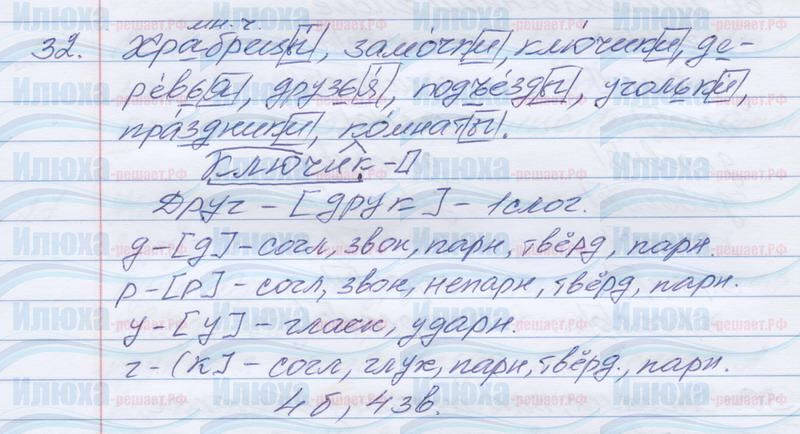 мн. ч.
32. Храбрецы, замочки, ключики, де-
ревья, друзья, подъезды, угольки,
праздники, комнаты.
Ключик-
Друг - [друк] - 1 слог.
д - [д] - согл, звон, парн, твёрд, парн.
р - [р] - согл, звон, непарн, твёрд, парн.
у - [у] - гласн, ударн.
г - [к] - согл, глух, парн, твёрд., парн.
4 б, 4 зв.
Илюха-решает.РФ